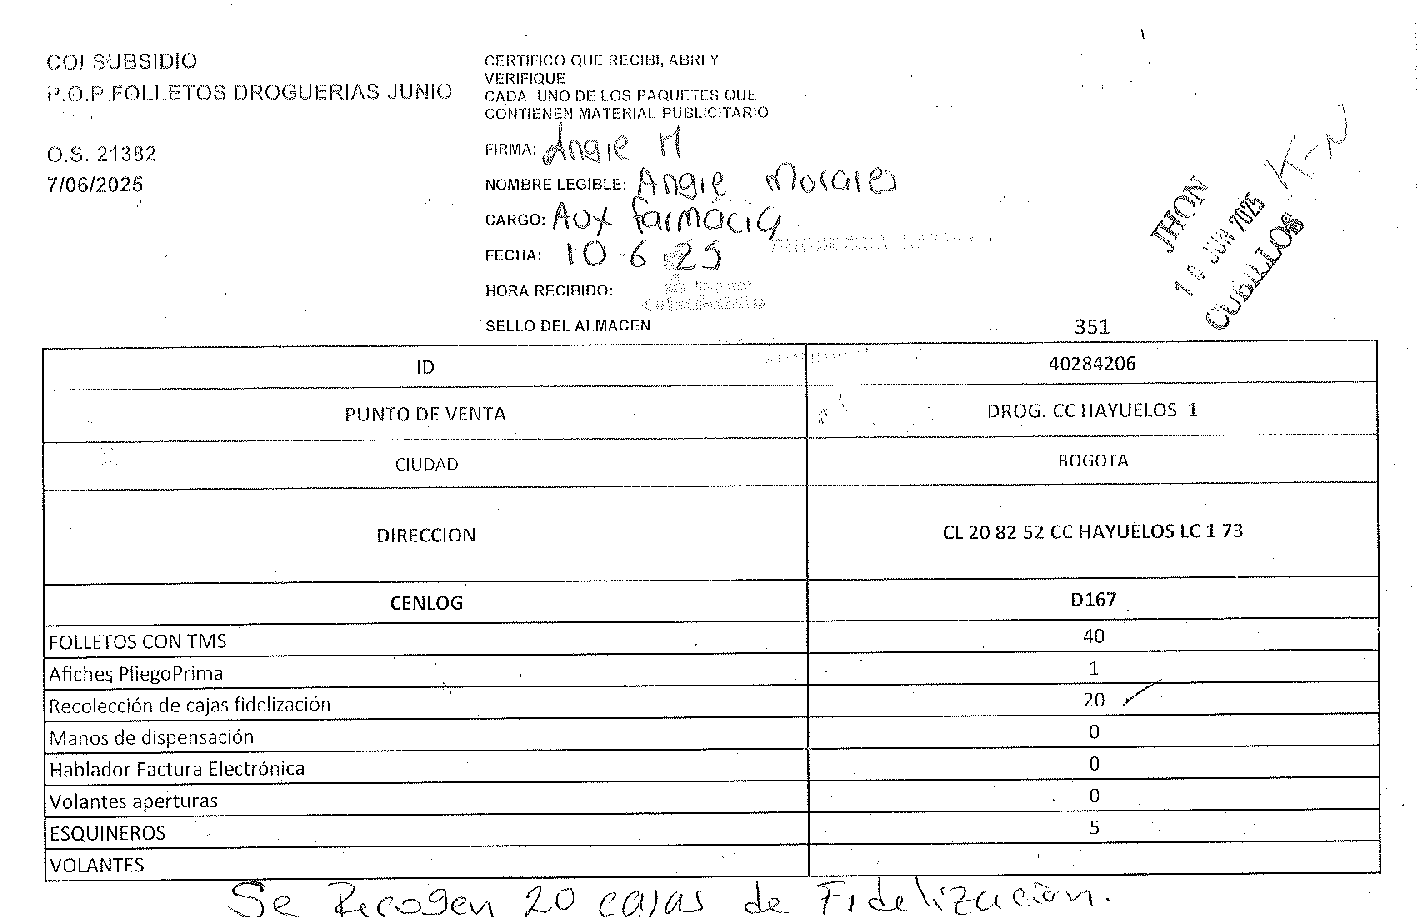 COLSUBSIDIO
P.O.P FOLLETOS DROGUERIAS JUNIO
O.S. 21382
7/06/2025
CERTIFICO QUE RECIBI, ABRI Y
VERIFIQUE
CADA UNO DE LOS PAQUETES QUE
CONTIENEN MATERIAL PUBLICITARIO
FIRMA: Angie M
NOMBRE LEGIBLE: Angie Morales
CARGO: Aux farmacia
FECHA: 10-6-25
HORA RECIBIDO:
SELLO DEL ALMACEN
JHON
10 JUN 2025
CUBILLOS
K-N
351
ID 40284206
PUNTO DE VENTA DROG. CC HAYUELOS 1
CIUDAD BOGOTA
DIRECCION CL 20 82 52 CC HAYUELOS LC 1 73
CENLOG D167
FOLLETOS CON TMS 40
Afiches PliegoPrima 1
Recolección de cajas fidelización 20
Manos de dispensación 0
Hablador Factura Electrónica 0
Volantes aperturas 0
ESQUINEROS 5
VOLANTES
Se Recogen 20 cajas de Fidelización.